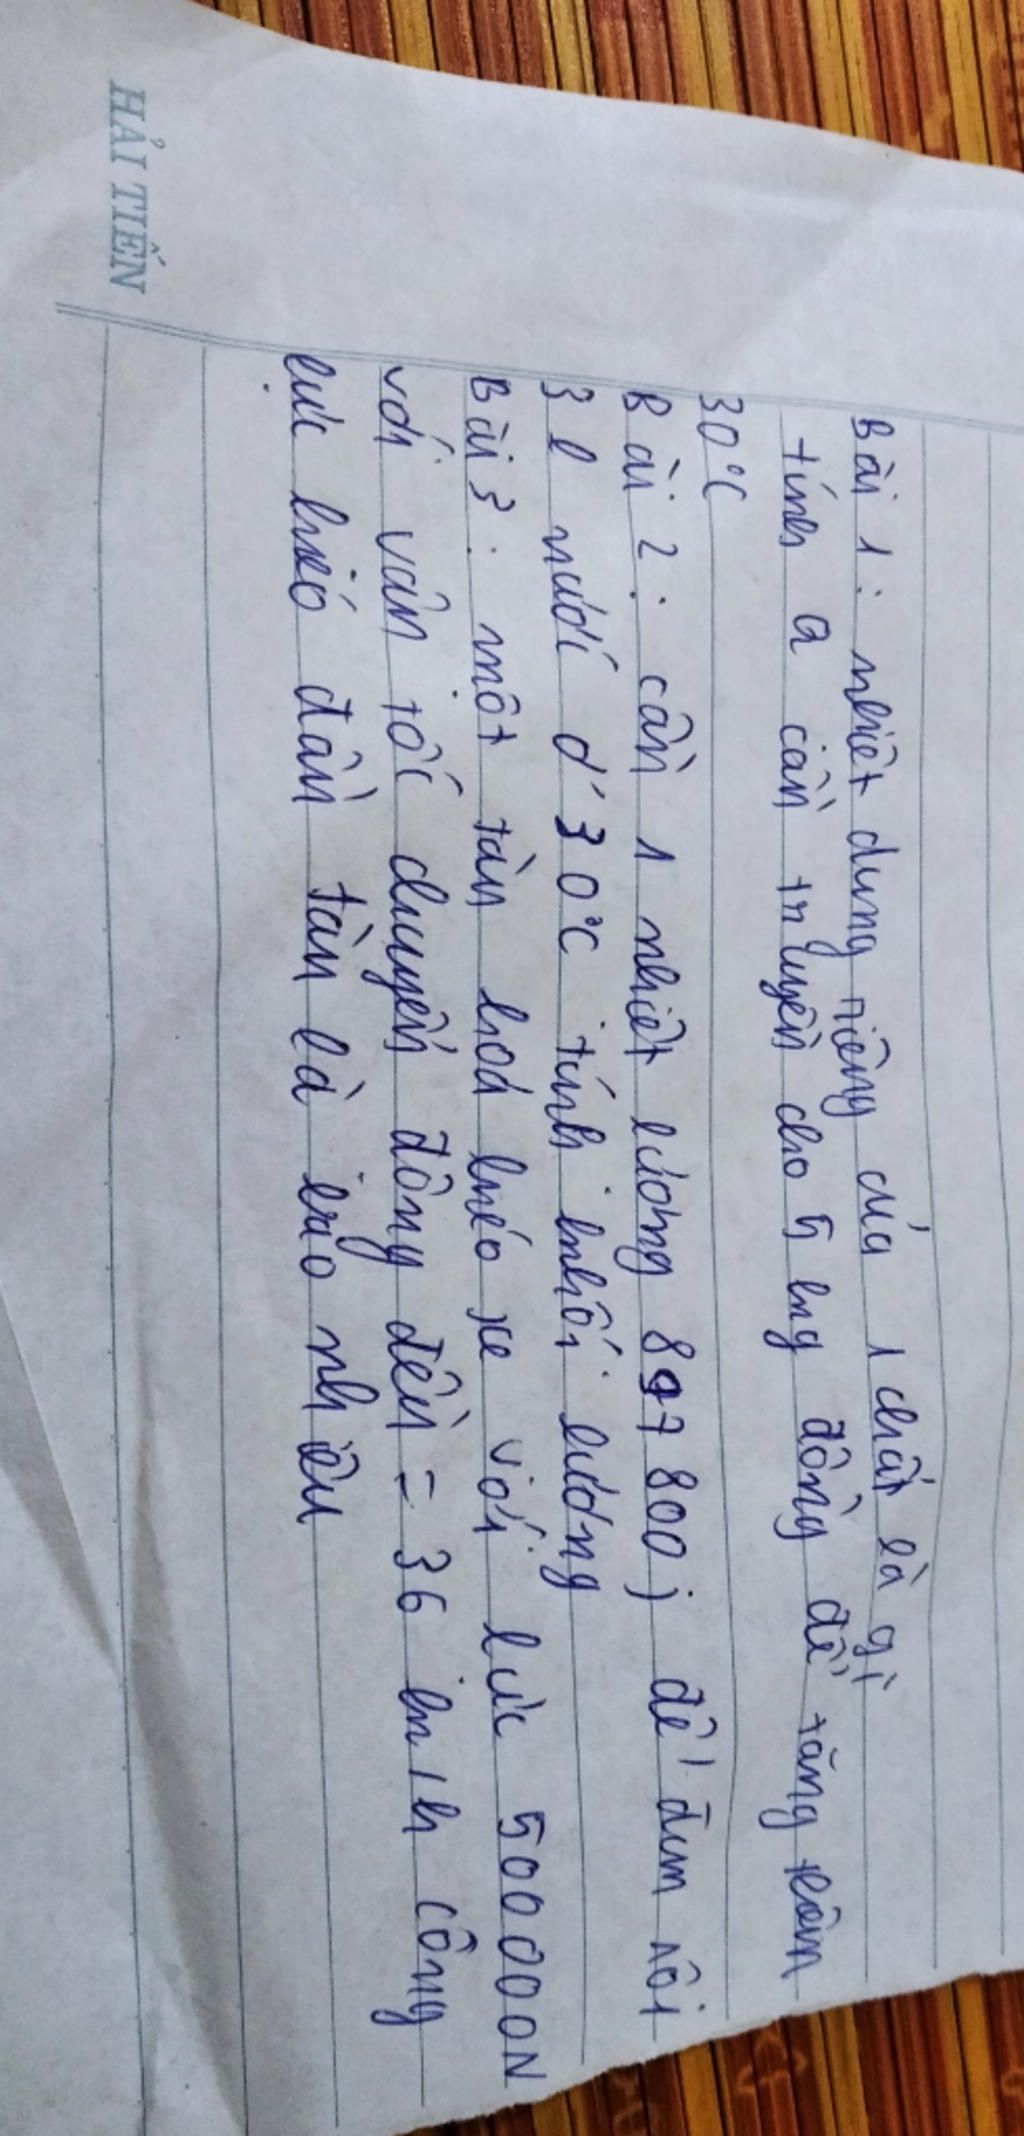 HẢI TIẾN
Bài 1: nhiệt dung riêng của 1 chất là gì
tính Q cần truyền cho 5 kg đồng để tăng thêm
30°C
Bài 2: cần 1 nhiệt lượng 897800j để đun sôi
3 l nước ở 30°C tính khối lượng
Bài 3: một tàu hoả kéo xe với lực 500000N
với vận tốc chuyển động đều = 36 km/h công
lực kéo đầu tàu là bao nhiêu